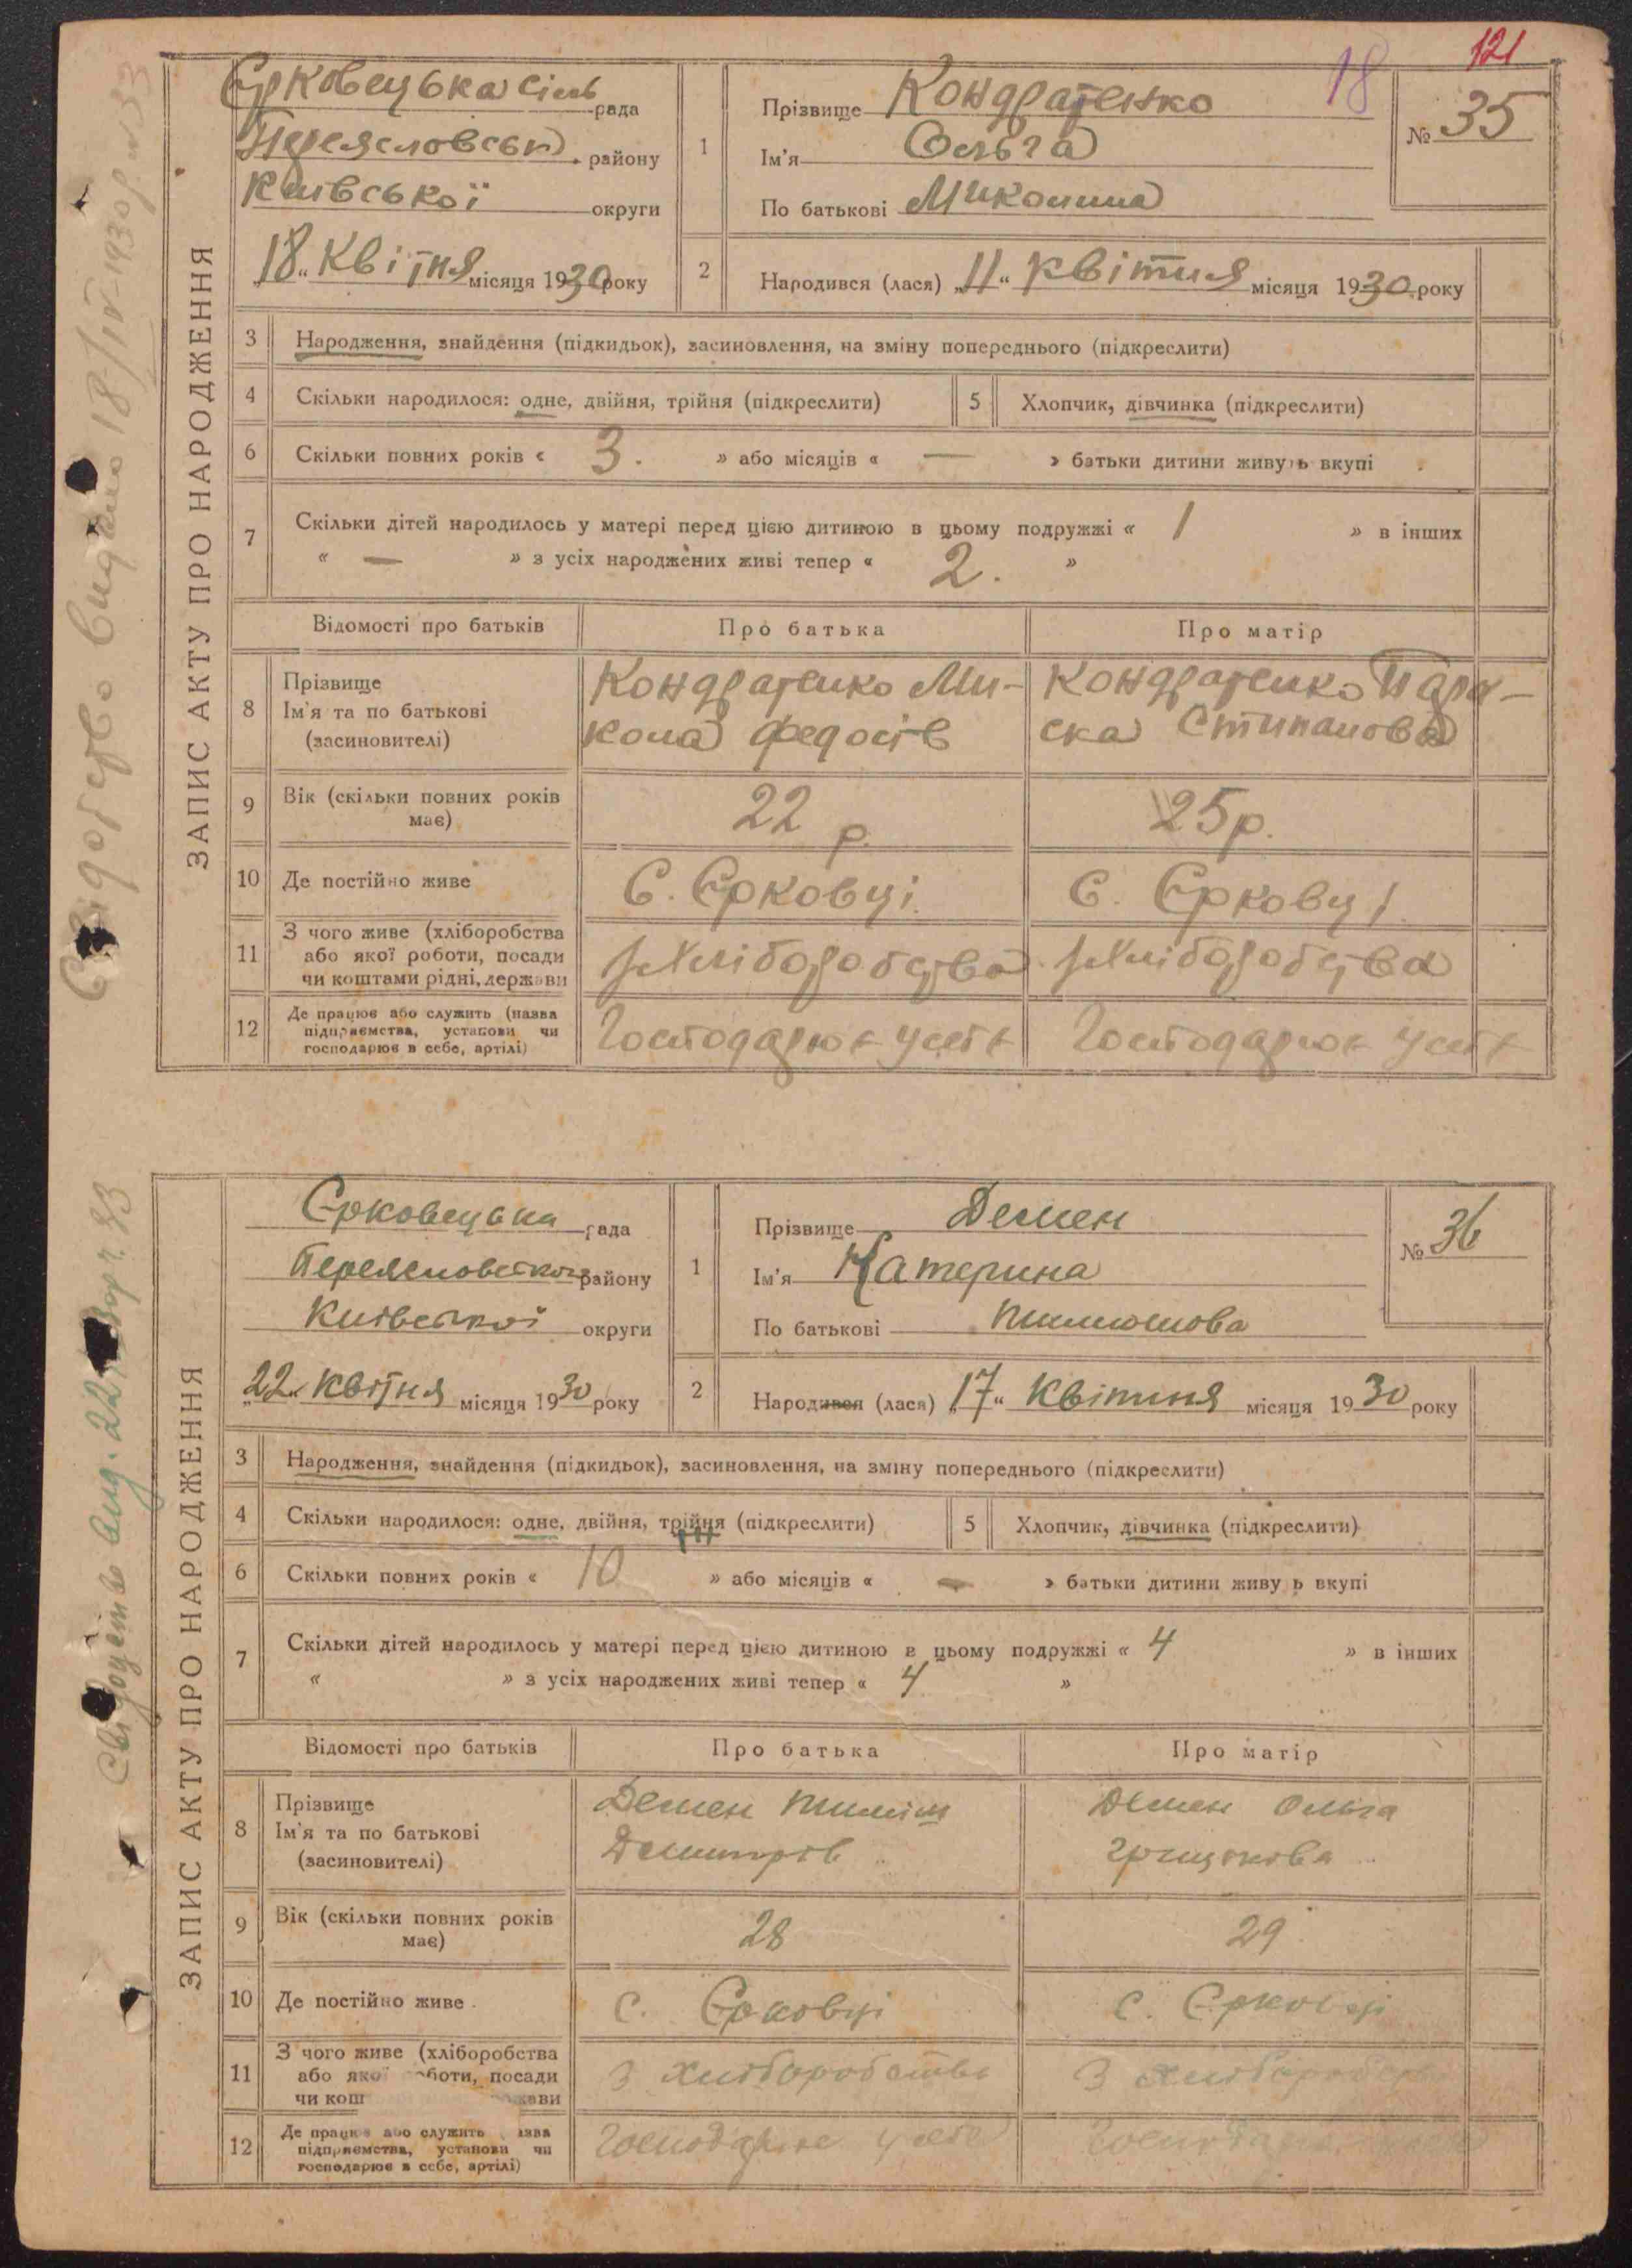 121
18
ЗАПИС АКТУ ПРО НАРОДЖЕННЯ
Єрковецька сіль рада
Переясловськ району
Київської округи
„18“ Квітня місяця 1930 року
1
Прізвище Кондратенко
Ім'я Ольга
По батькові Миколина
№ 35
2
Народився (лася) „11“ квітня місяця 1930 року
3 Народження, знайдення (підкидьок), засиновлення, на зміну попереднього (підкреслити)
4 Скільки народилося: одне, двійня, трійня (підкреслити) 5 Хлопчик, дівчинка (підкреслити)
6 Скільки повних років « 3. » або місяців « — » батьки дитини живуть вкупі
7 Скільки дітей народилось у матері перед цією дитиною в цьому подружжі « 1 » в інших
« — » з усіх народжених живі тепер « 2. »
Відомості про батьків Про батька Про матір
8 Прізвище
Ім'я та по батькові
(засиновителі)
Кондратенко Ми-
кола Федосів
Кондратенко Пара-
ска Стипанова
9 Вік (скільки повних років
має)
22 р.
25 р.
10 Де постійно живе С. Єрковці. С. Єрковці.
11 З чого живе (хліборобства
або якої роботи, посади
чи коштами рідні, держави
з Хліборобства з Хліборобства
12 Де працює або служить (назва
підприємства, установи чи
господарює в себе, артілі)
Господарює у себе Господарює у себе
Свідоцтво видано 18/IV-1930 р. № 33
ЗАПИС АКТУ ПРО НАРОДЖЕННЯ
Єрковецька рада
Переясловського району
Київської округи
„22“ Квітня місяця 1930 року
1
Прізвище Демен
Ім'я Катерина
По батькові Пилипова
№ 36
2
Народився (лася) „17“ Квітня місяця 1930 року
3 Народження, знайдення (підкидьок), засиновлення, на зміну попереднього (підкреслити)
4 Скільки народилося: одне, двійня, трійня (підкреслити) 5 Хлопчик, дівчинка (підкреслити)
6 Скільки повних років « 10 » або місяців « — » батьки дитини живу ь вкупі
7 Скільки дітей народилось у матері перед цією дитиною в цьому подружжі « 4 » в інших
« » з усіх народжених живі тепер « 4 »
Відомості про батьків Про батька Про матір
8 Прізвище
Ім'я та по батькові
(засиновителі)
Демен
Демен Ольга
9 Вік (скільки повних років
має)
28
29
10 Де постійно живе с. Єрковці с. Єрковці
11 З чого живе (хліборобства
або якої роботи, посади
чи кош жави
З хліборобства З хліборобства
12 Де працює або служить назва
підприємства, установи чи
господарює в себе, артілі)
Господарює у себе
Свідоцтво вид. 22